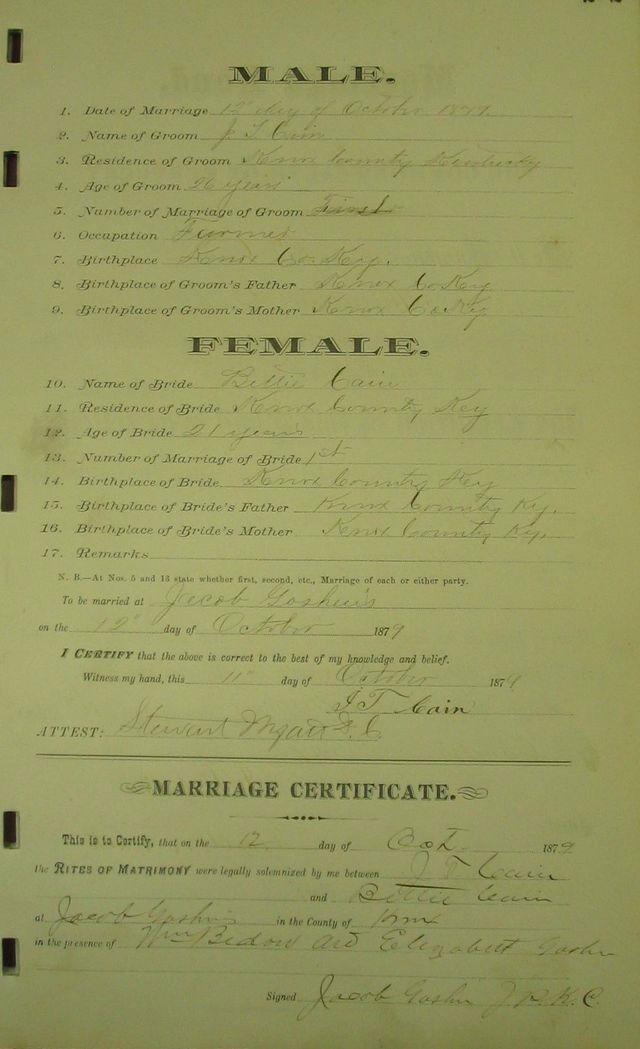 MALE.
1. Date of Marriage 12" day of October 1879
2. Name of Groom J T Cain
3. Residence of Groom Knox County Kentucky
4. Age of Groom 26 years
5. Number of Marriage of Groom First
6. Occupation Farmer
7. Birthplace Knox Co Key.
8. Birthplace of Groom's Father Knox Co Key
9. Birthplace of Groom's Mother Knox Co Ky
FEMALE.
10. Name of Bride Bettie Cain
11. Residence of Bride Knox County Key
12. Age of Bride 21 years
13. Number of Marriage of Bride 1st
14. Birthplace of Bride Knox County Key
15. Birthplace of Bride's Father Knox County Ky.
16. Birthplace of Bride's Mother Knox County Ky.
17. Remarks
N. B.—At Nos. 5 and 13 state whether first, second, etc., Marriage of each or either party.
To be married at Jacob
on the 12" day of October 1879
I CERTIFY that the above is correct to the best of my knowledge and belief.
Witness my hand, this 11" day of October 1879
J T Cain
ATTEST: Stewart
MARRIAGE CERTIFICATE.
This is to Certify, that on the 12 day of Oct. 1879
the RITES OF MATRIMONY were legally solemnized by me between J T Cain
and Bettie Cain
at Jacob in the County of Knox
in the presence of Wm and Elizabeth
Signed Jacob J P. K. C.